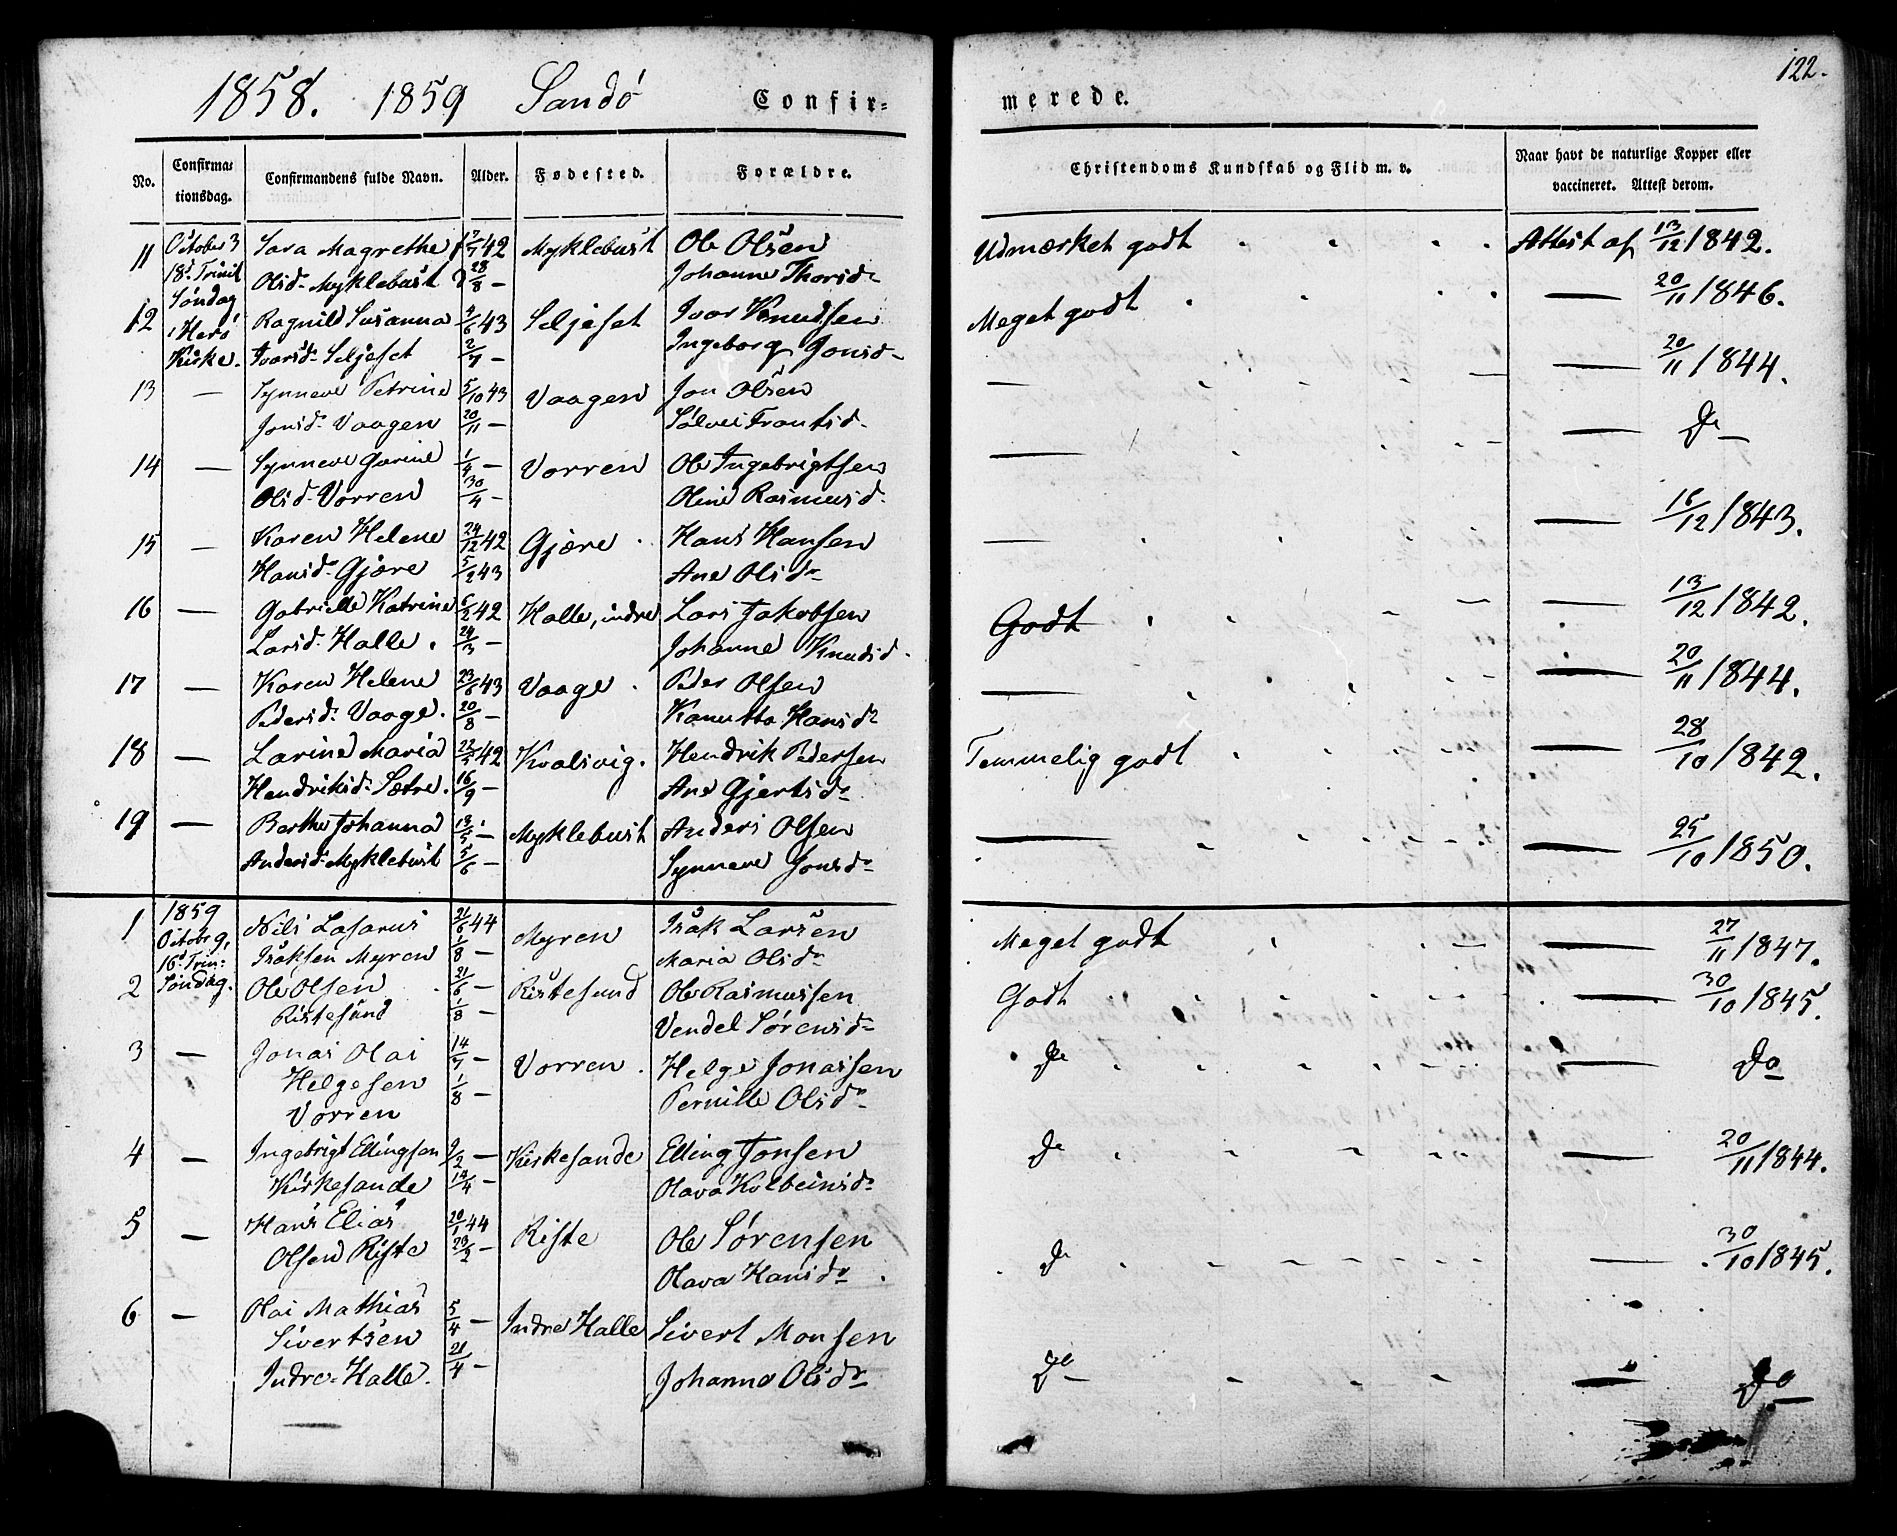 122.
1858. 1859 Sandö Confir=
merede.
No. Confirma= tionsdag. Confirmandens fulde Navn. Alder. Fødested. Forældre. Christendoms Kundskab og Flid m. v. Naar havt de naturlige Kopper eller vaccineret. Attest derom.
11 October 3 Sara Magrethe 7/7 42 Myklebust Ole Olsen Udmærket godt Attest af 13/12 1842.
18d. Trinit Olsd. Myklebust 28/8 — Johanne Thorsd.
Søndag
12 i Herö Ragnild Susanna 4/6 43 Seljeset Ivar Knudsen Meget godt — 20/11 1846.
Kirke. Ivarsd. Seljeset 2/7 — Ingeborg Jonsd.
13 — Synneve Petrine 5/10 43 Vaagen Jon Olsen — — 20/11 1844.
Jonsd. Vaagen 20/11 — Sølvei Frantsd.
14 — Synneve Gurine 1/4 — Vorren Ole Ingebrigtsen — — Do
Olsd. Vorren 30/4 — Oline Rasmusd.
15 — Karen Helene 24/12 42 Gjære Hans Hansen — — 16/12 1843.
Hansd. Gjære 5/2 43 Ane Olsd.
16 — Gabrielle Katrine 6/2 42 Halle, indre Lars Jakobsen Godt — 13/12 1842.
Larsd. Halle. 24/3 — Johanne Knudsd.
17 — Karen Helene 23/6 43 Vaage Peder Olsen — — 20/11 1844.
Pedersd. Vaage. 20/8 — Kanutta Hansd.
18 — Larine Maria 22/7 42 Kvalsvig. Hendrik Pedersen Temmelig godt — 28/10 1842.
Hendriksd. Sætre. 16/9 — Ane Gjertsd.
19 — Berthe Johanna 13/5 — Myklebust Anders Olsen — — 25/10 1850.
Andersd. Myklebust 5/6 — Synneve Jonsd.
1 1859 Nils Lasarus 21/6 44 Myren Isak Larsen Meget godt — 27/11 1847.
Octobr 9, Isaksen Myren 1/8 — Maria Olsd.
16d. Trin:
2 Søndag. Ole Olsen 21/6 — Ristesund Ole Rasmussen Godt — 30/10 1845.
Ristesund 1/8 — Vendel Sørensd.
3 — Jonas Olai 14/7 — Vorren. Helge Jonassen Do — Do
Helgesen 1/8 — Pernille Olsd.
Vorren
4 — Ingebrigt Ellingsen 9/2 — Kirkesande Elling Jonsen Do — 20/11 1844.
Kirkesande 14/4 — Olava Kolbeinsd.
5 — Hans Elias 20/1 44 Riste Ole Sørensen Do — 30/10 1845.
Olsen Riste 23/2 — Olava Hansd.
6 — Olai Mathias 5/4 — Indre Halle Sivert Monsen Do — Do
Sivertsen 21/4 — Johanne Olsd.
Indre-Halle.